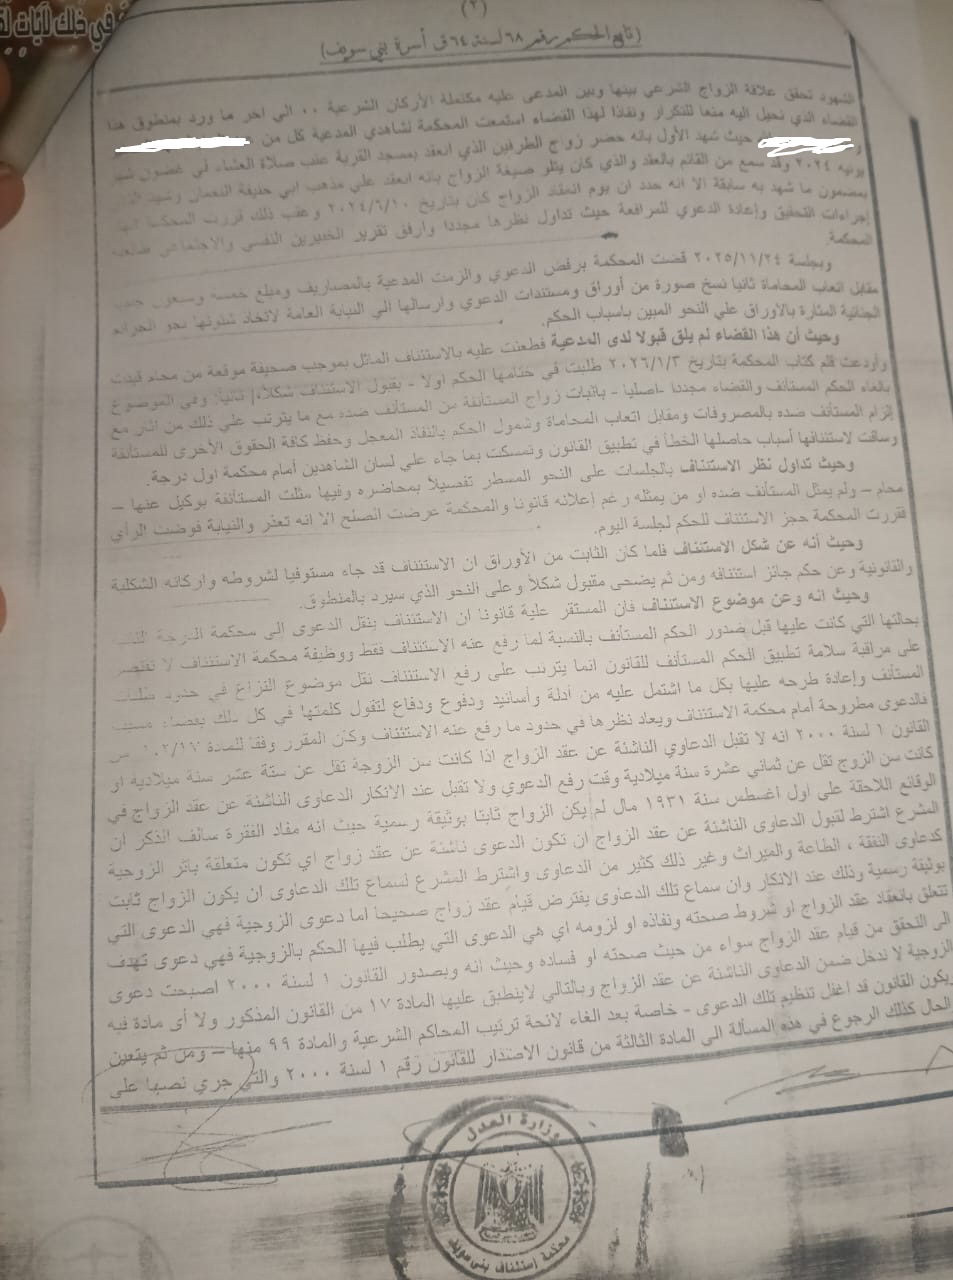 في ذلك لآيات
(٢)
(تابع الحكم رقم ٦٨ لسنة ٦٤ ق أسرة بني سويف)
الشهود تحقق علاقة الزواج الشرعي بينها وبين المدعى عليه مكتملة الأركان الشرعية .. الي اخر ما ورد بمنطوق هذا
القضاء الذي نحيل اليه منعا للتكرار ونفاذا لهذا القضاء استمعت المحكمة لشاهدي المدعية كل من
حيث شهد الأول بانه حضر زواج الطرفين الذي انعقد بمسجد القرية عقب صلاة العشاء في غضون شهر
يونيه ٢٠٢٤ وقد سمع من القائم بالعقد والذي كان يتلو صيغة الزواج بانه انعقد علي مذهب ابي حنيفة النعمان وشهد
بمضمون ما شهد به سابقة الا انه حدد ان يوم انعقاد الزواج كان بتاريخ ٢٠٢٤/٦/١٠ وعقب ذلك قررت المحكمة
إجراءات التحقيق وإعادة الدعوي للمرافعة حيث تداول نظرها مجددا وارفق تقرير الخبيرين النفسي والاجتماعي
المحكمة.
وبجلسة ٢٠٢٥/١١/٢٤ قضت المحكمة برفض الدعوي والزمت المدعية بالمصاريف ومبلغ خمسة وسبعون جنيه
مقابل اتعاب المحاماة ثانيا نسخ صورة من أوراق ومستندات الدعوي وارسالها الي النيابة العامة لاتخاذ شئونها نحو الجرائم
الجنائية المثارة بالاوراق علي النحو المبين باسباب الحكم.
وحيث أن هذا القضاء لم يلق قبولا لدى المدعية فطعنت عليه بالاستئناف الماثل بموجب صحيفة موقعة من محام قيدت
وأودعت قلم كتاب المحكمة بتاريخ ٢٠٢٦/١/٣ طلبت في ختامها الحكم اولا - بقبول الاستئناف شكلا، ثانيا: وفي الموضوع
بالغاء الحكم المستأنف والقضاء مجددا - اصليا - باثبات زواج المستأنفة من المستأنف ضده مع ما يترتب علي ذلك من اثار مع
إلزام المستأنف ضده بالمصروفات ومقابل اتعاب المحاماة وشمول الحكم بالنفاذ المعجل وحفظ كافة الحقوق الأخرى للمستأنفة
وساقت لاستئنافها أسباب حاصلها الخطأ في تطبيق القانون وتمسكت بما جاء علي لسان الشاهدين أمام محكمة اول درجة.
وحيث تداول نظر الاستئناف بالجلسات على النحو المسطر تفصيلاً بمحاضره وفيها مثلت المستأنفة بوكيل عنها –
محام – ولم يمثل المستأنف ضده او من يمثله رغم إعلانه قانونا والمحكمة عرضت الصلح الا انه تعذر والنيابة فوضت الرأي
فقررت المحكمة حجز الاستئناف للحكم لجلسة اليوم.
وحيث أنه عن شكل الاستئناف فلما كان الثابت من الأوراق ان الاستئناف قد جاء مستوفيا لشروطه واركانه الشكلية
والقانونية وعن حكم جائز استئنافه ومن ثم يضحى مقبول شكلاً وعلى النحو الذي سيرد بالمنطوق.
وحيث انه وعن موضوع الاستئناف فان المستقر علية قانونا ان الاستئناف ينقل الدعوى الى محكمة الدرجة
بحالتها التي كانت عليها قبل صدور الحكم المستأنف بالنسبة لما رفع عنه الاستئناف فقط ووظيفة محكمة الاستئناف لا تقتصر
على مراقبة سلامة تطبيق الحكم المستأنف للقانون انما يترتب على رفع الاستئناف نقل موضوع النزاع في حدود طلبات
المستأنف وإعادة طرحه عليها بكل ما اشتمل عليه من أدلة وأسانيد ودفوع ودفاع لتقول كلمتها في كل ذلك بقضاء مسبب
فالدعوى مطروحة أمام محكمة الاستئناف ويعاد نظرها في حدود ما رفع عنه الاستئناف وكان المقرر وفقا للمادة من
القانون ١ لسنة ٢٠٠٠ انه لا تقبل الدعاوي الناشئة عن عقد الزواج اذا كانت سن الزوجة تقل عن ستة عشر سنة ميلادية او
كانت سن الزوج تقل عن ثماني عشرة سنة ميلادية وقت رفع الدعوي ولا تقبل عند الانكار الدعاوى الناشئة عن عقد الزواج في
الوقائع اللاحقة على اول اغسطس سنة ١٩٣١ مال لم يكن الزواج ثابتا بوثيقة رسمية حيث انه مفاد الفقرة سالف الذكر ان
المشرع اشترط لقبول الدعاوى الناشئة عن عقد الزواج ان تكون الدعوى ناشئة عن عقد زواج اي تكون متعلقة باثر الزوجية
كدعاوى النفقة ، الطاعة والميراث وغير ذلك كثير من الدعاوى واشترط المشرع لسماع تلك الدعاوى ان يكون الزواج ثابت
بوثيقة رسمية وذلك عند الانكار وان سماع تلك الدعاوى يفترض قيام عقد زواج صحيحا اما دعوى الزوجية فهي الدعوى التي
تتعلق بانعقاد عقد الزواج او شروط صحته ونفاذه او لزومه اي هي الدعوى التي يطلب فيها الحكم بالزوجية فهي دعوى تهدف
الى التحقق من قيام عقد الزواج سواء من حيث صحته او فساده وحيث انه وبصدور القانون ١ لسنة ٢٠٠٠ اصبحت دعوى
الزوجية لا تدخل ضمن الدعاوى الناشئة عن عقد الزواج وبالتالي لاينطبق عليها المادة ١٧ من القانون المذكور ولا أى مادة فيه
يكون القانون قد اغفل تنظيم تلك الدعوى - خاصة بعد الغاء لائحة ترتيب المحاكم الشرعية والمادة ٩٩ منها – ومن ثم يتعين
الحال كذلك الرجوع في هذه المسألة الى المادة الثالثة من قانون الاصدار للقانون رقم ١ لسنة ٢٠٠٠ والتي جري نصها على
وزارة العدل
محكمة إستئناف بنى سويف